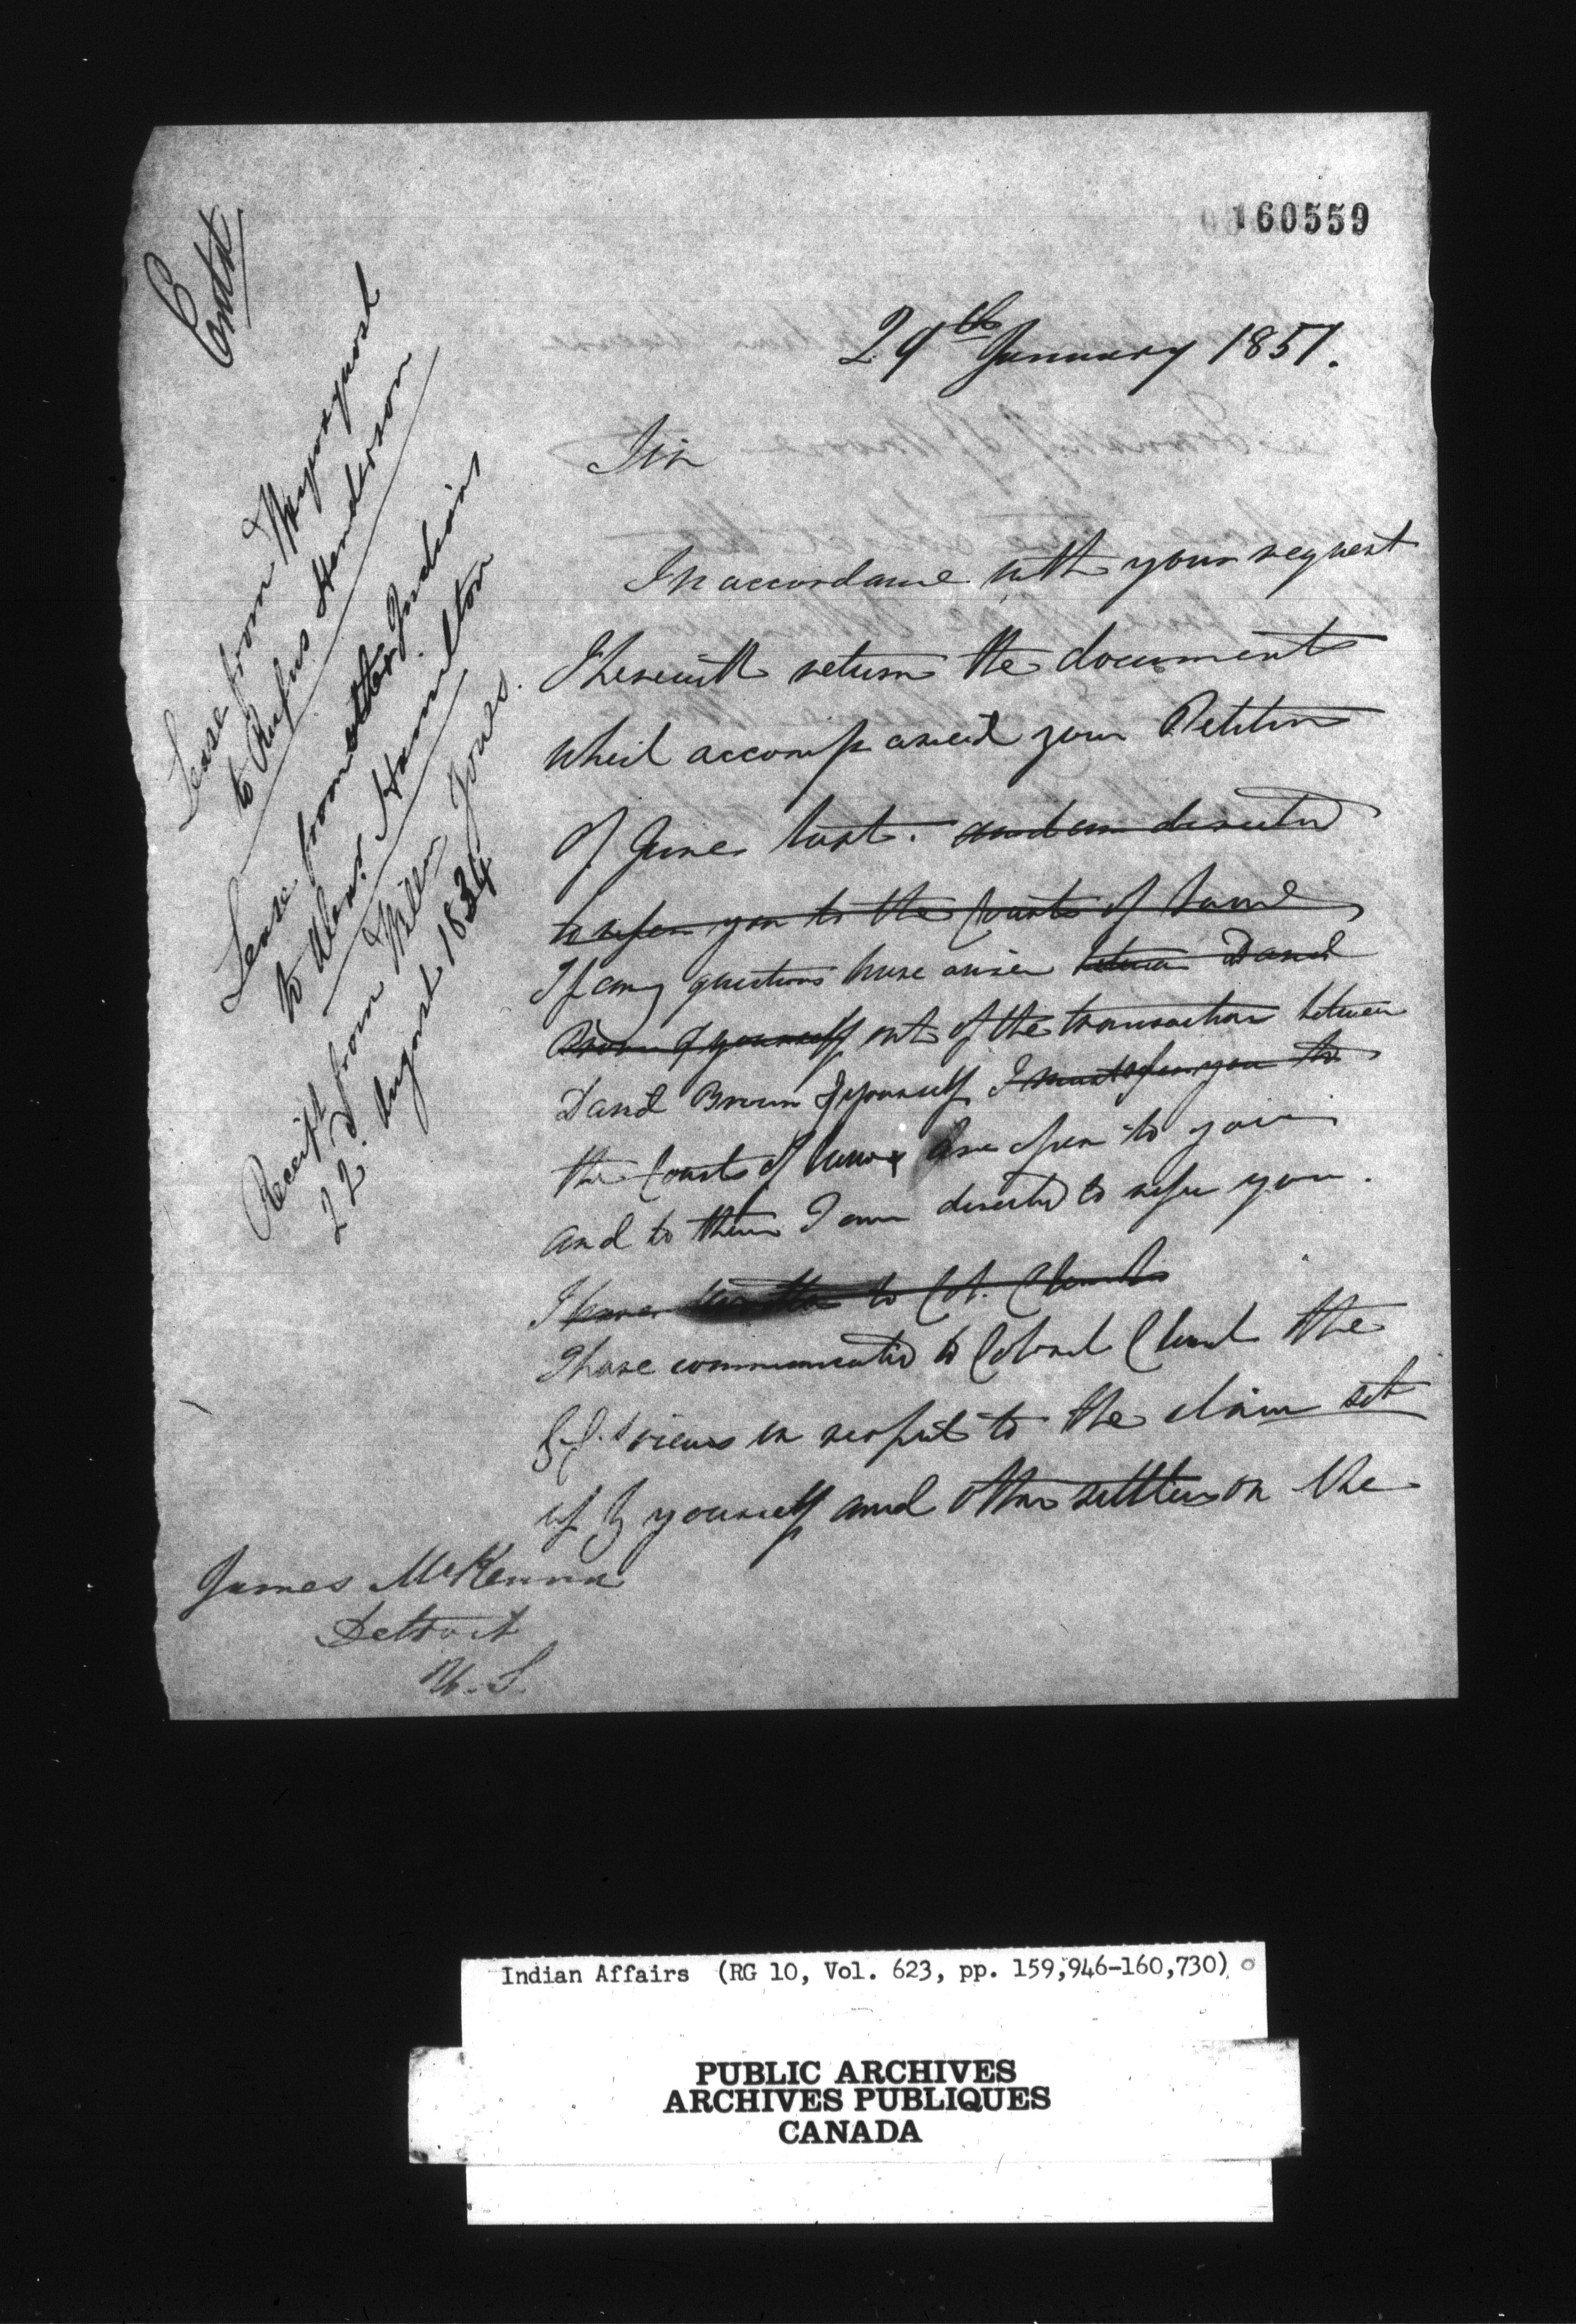 160559
29th January 1851.
Sir
In accordance with your request
I herewith return the documents
which accompanied your Petition
of June last. and am directed
to refer you to the Courts of Law
If any questions have arisen between David
Brown & yourself out of the transaction between
David Brown & yourself I must refer you to
the Courts of Law are open to you
and to them I am directed to refer you.
I have written to Col. Clench
I have communicated to Colonel Clench the
views in respect to the claim set
up by yourself and other settlers on the
James McKenna
Detroit
U.S.
Entd
Lease from
to Rufus Henderson
Lease from other Indians
to Alexr. Hamilton
Receipt from Miller Jones.
22d. August 1834
Indian Affairs (RG 10, Vol. 623, pp. 159,946-160,730)
PUBLIC ARCHIVES
ARCHIVES PUBLIQUES
CANADA